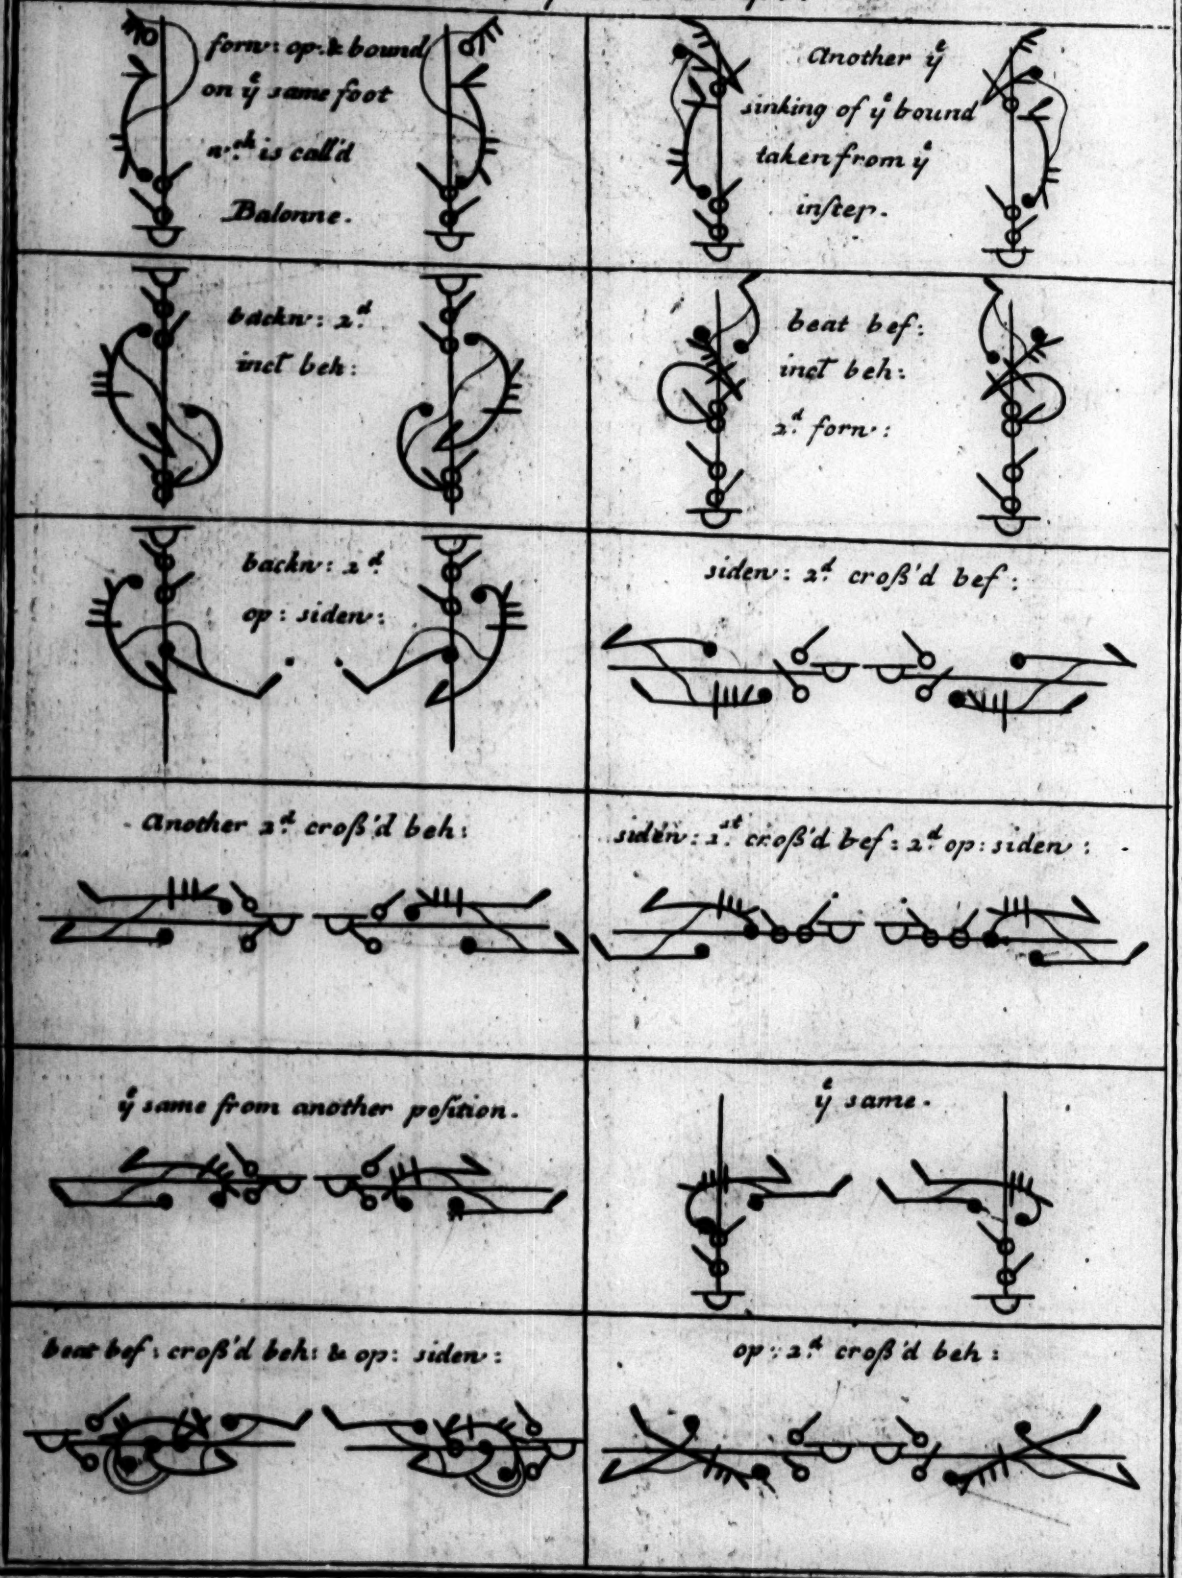 forw: op: & bound
on yᵉ same foot
wᶜʰ is call'd
Balonne.
Another yᵉ
sinking of yᵉ bound
taken from yᵉ
inſtep.
backw: 2ᵈ
inct beh:
beat bef:
inct beh:
2ᵈ forw:
backw: 2ᵈ
op: sidew:
sidew: 2ᵈ croß'd bef:
Another 2ᵈ croß'd beh:
sidew: 1ˢᵗ croß'd bef: 2ᵈ op: sidew:
yᵉ same from another poſition.
yᵉ same.
beat bef: croß'd beh: & op: sidew:
op: 2ᵈ croß'd beh: